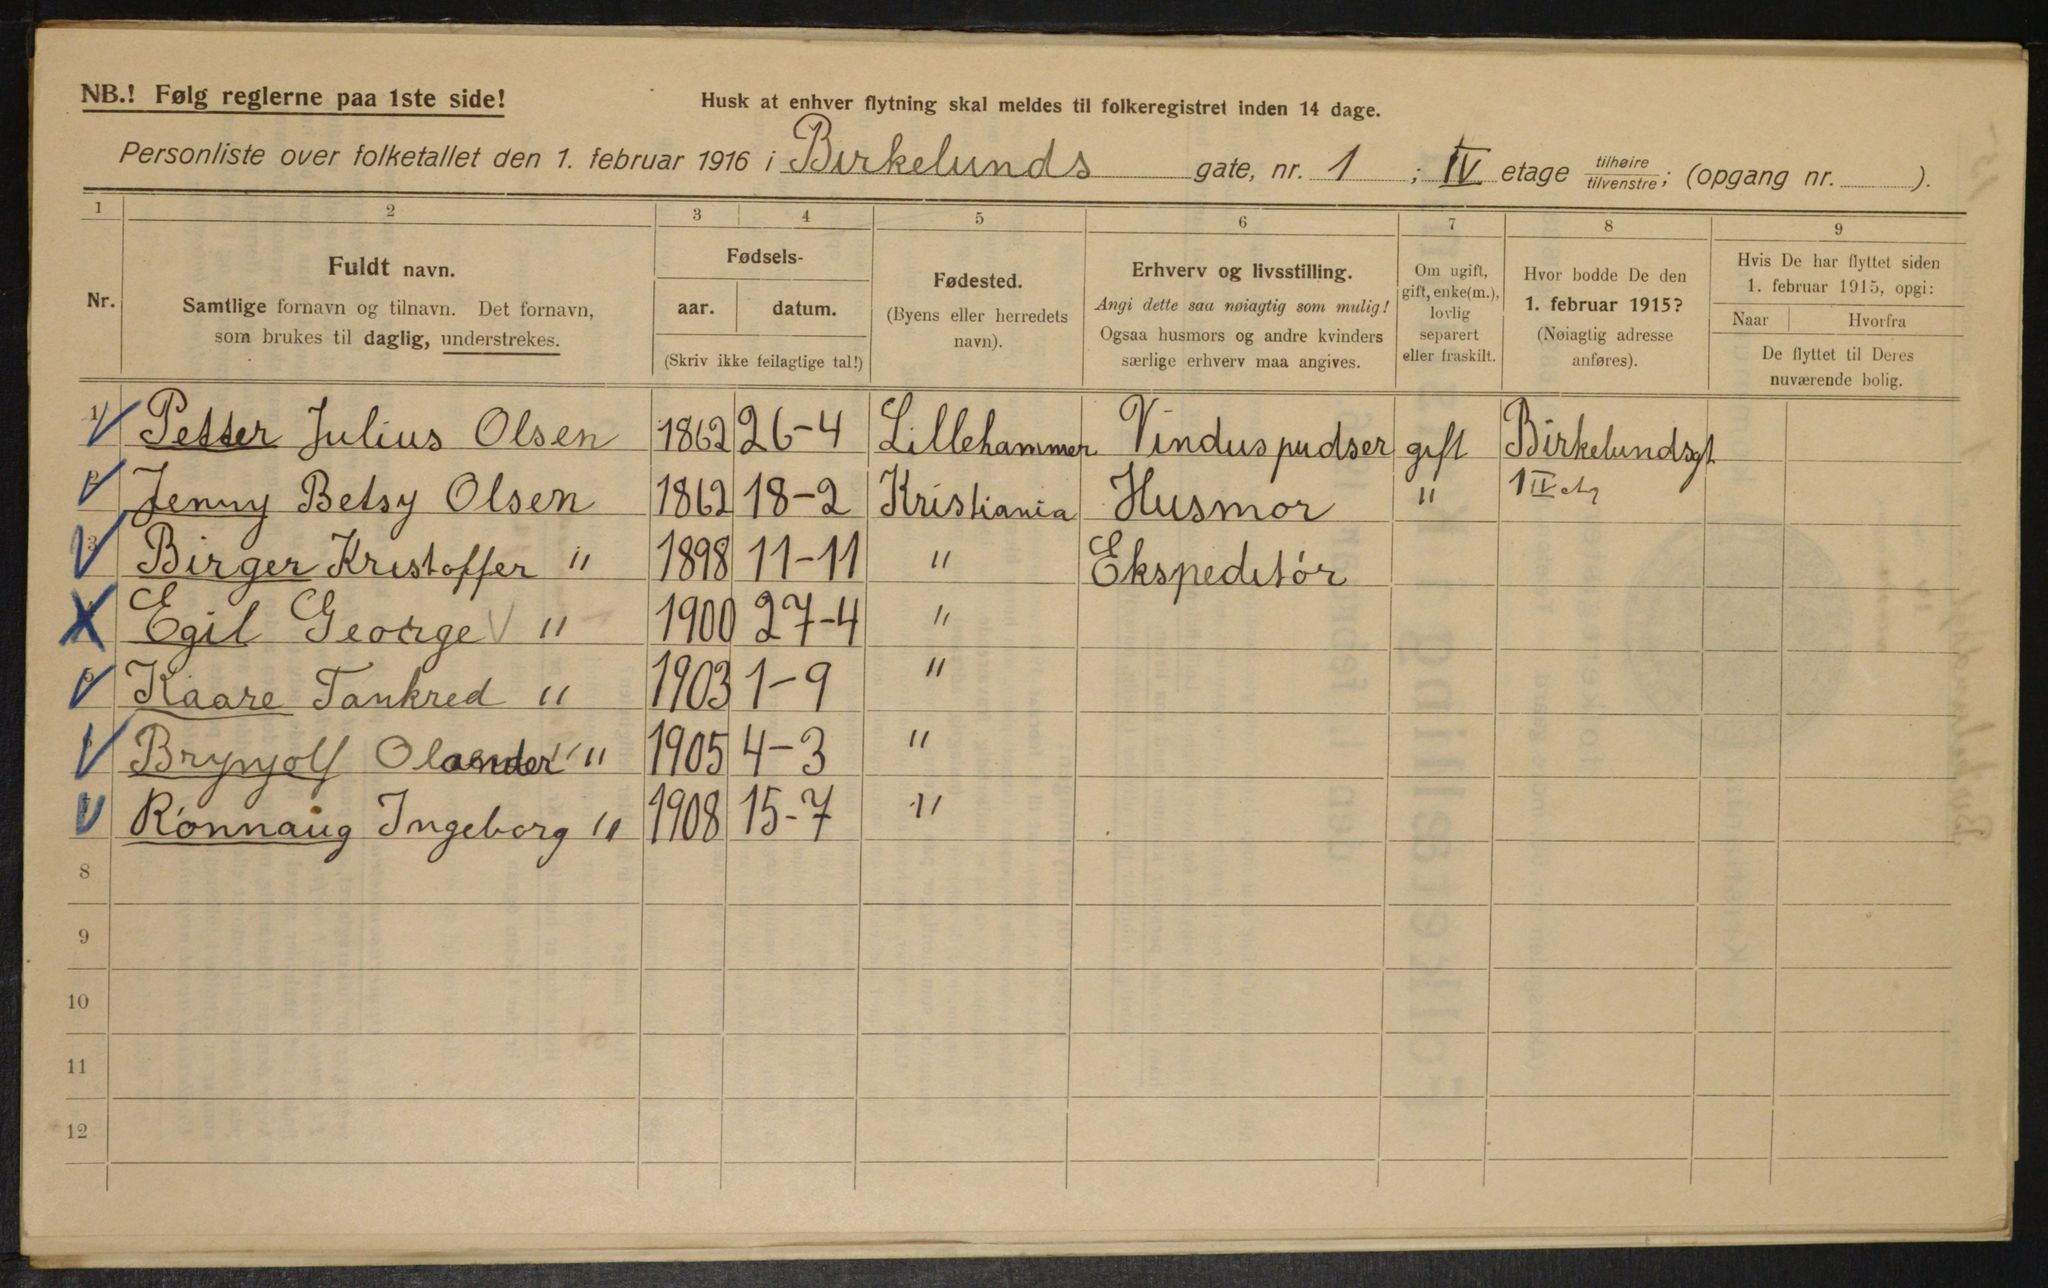 NB.! Følg reglerne paa 1ste side!
Husk at enhver flytning skal meldes til folkeregistret inden 14 dage.
Personliste over folketallet den 1. februar 1916 i Birkelunds gate, nr. 1 ; IV etage tilhøire/tilvenstre; (opgang nr. ).
1 2 3 4 5 6 7 8 9
Nr.
Fuldt navn.
Samtlige fornavn og tilnavn. Det fornavn,
som brukes til daglig, understrekes.
Fødsels-
aar. datum.
(Skriv ikke feilagtige tal!)
Fødested.
(Byens eller herredets
navn).
Erhverv og livsstilling.
Angi dette saa nøiagtig som mulig!
Ogsaa husmors og andre kvinders
særlige erhverv maa angives.
Om ugift,
gift, enke(m.),
lovlig
separert
eller fraskilt.
Hvor bodde De den
1. februar 1915?
(Nøiagtig adresse
anføres).
Hvis De har flyttet siden
1. februar 1915, opgi:
Naar Hvorfra
De flyttet til Deres
nuværende bolig.
1 Petter Julius Olsen 1862 26-4 Lillehammer Vinduspudser gift Birkelundsgt
Jenny Betsy Olsen 1862 18-2 Kristiania Husmor " 1 IV etg
3 Birger Kristoffer " 1898 11-11 " Ekspeditør
Egil George " 1900 27-4 "
Kaare Tankred " 1903 1-9 "
Brynjolf Olander " 1905 4-3 "
Rønnaug Ingeborg " 1908 15-7 "
8
9
10
11
12